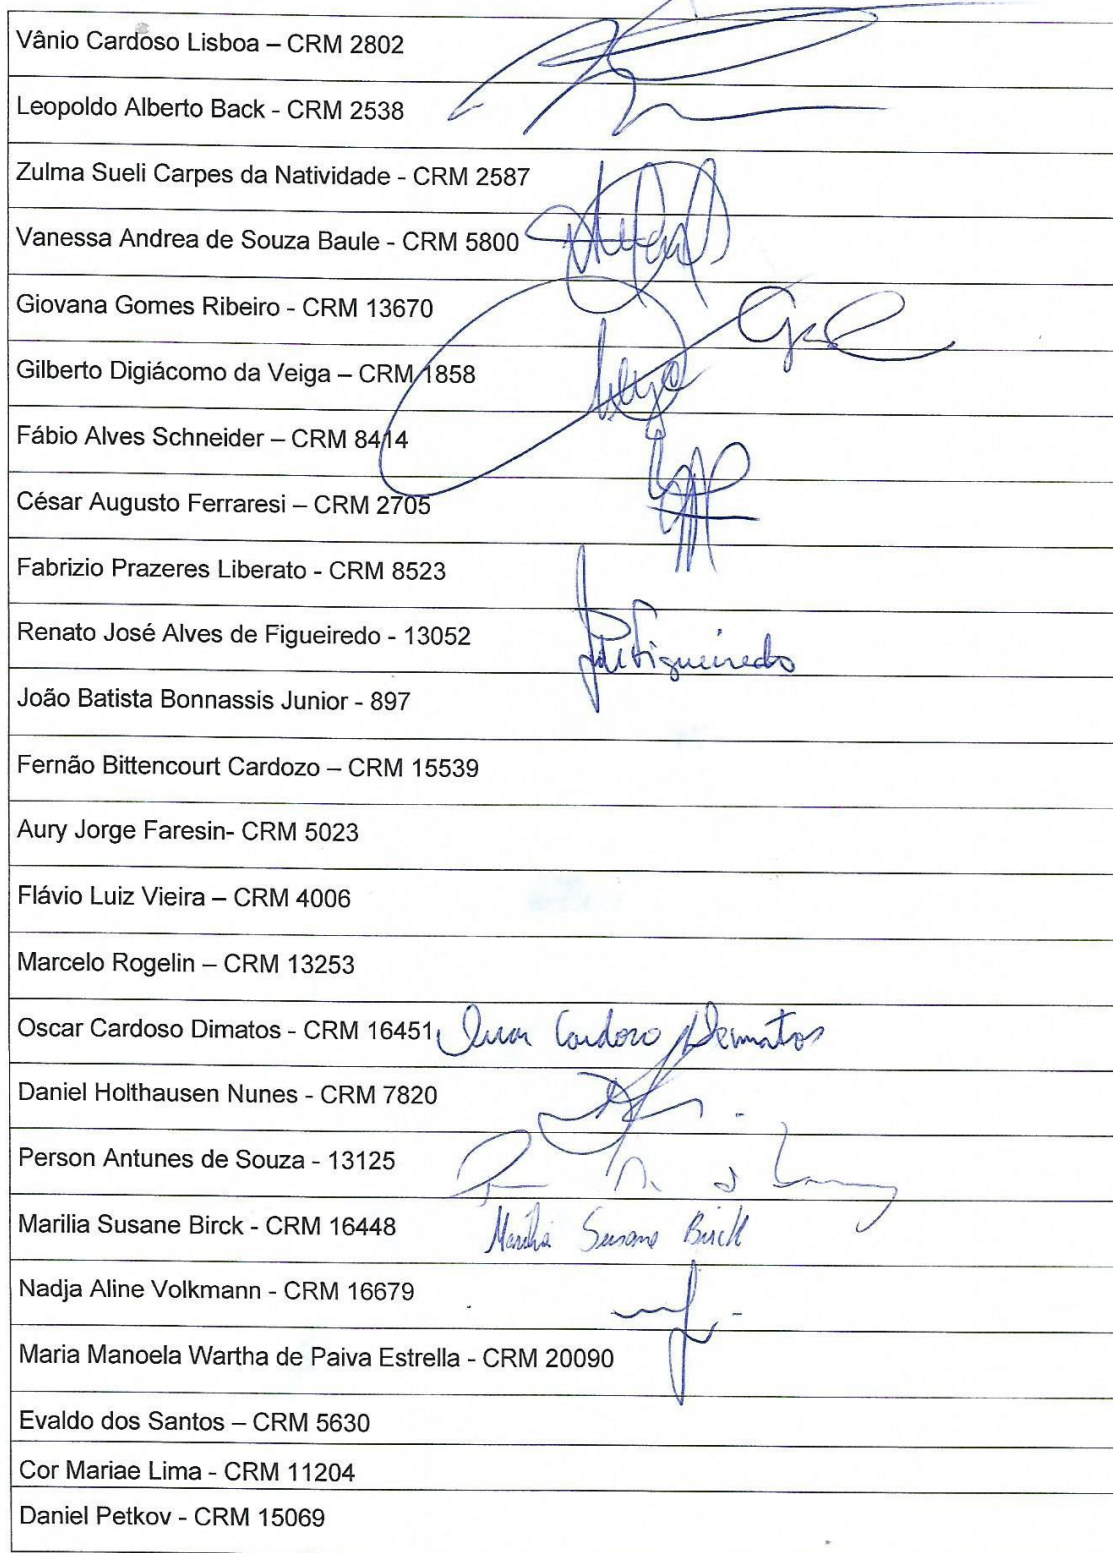 Vânio Cardoso Lisboa – CRM 2802
Leopoldo Alberto Back - CRM 2538
Zulma Sueli Carpes da Natividade - CRM 2587
Vanessa Andrea de Souza Baule - CRM 5800
Giovana Gomes Ribeiro - CRM 13670
Gilberto Digiácomo da Veiga – CRM 1858
Fábio Alves Schneider – CRM 8414
César Augusto Ferraresi – CRM 2705
Fabrizio Prazeres Liberato - CRM 8523
Renato José Alves de Figueiredo - 13052 Figueiredo
João Batista Bonnassis Junior - 897
Fernão Bittencourt Cardozo – CRM 15539
Aury Jorge Faresin- CRM 5023
Flávio Luiz Vieira – CRM 4006
Marcelo Rogelin – CRM 13253
Oscar Cardoso Dimatos - CRM 16451 Oscar Cardoso Dimatos
Daniel Holthausen Nunes - CRM 7820
Person Antunes de Souza - 13125
Marilia Susane Birck - CRM 16448 Marilia Susane Birck
Nadja Aline Volkmann - CRM 16679
Maria Manoela Wartha de Paiva Estrella - CRM 20090
Evaldo dos Santos – CRM 5630
Cor Mariae Lima - CRM 11204
Daniel Petkov - CRM 15069